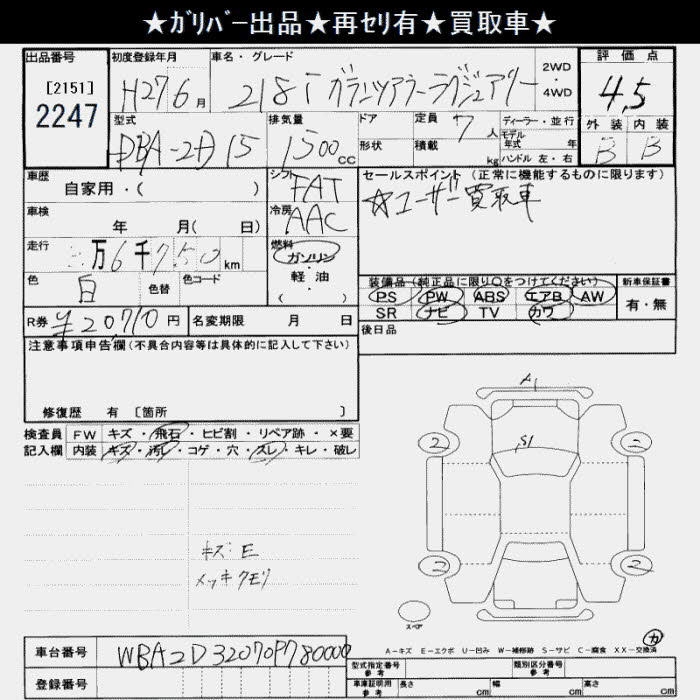 ★ｶﾞﾘﾊﾞｰ出品★再ｾﾘ有★買取車★
出品番号
[2151]
2247
初度登録年月
H27 6月
車名・グレード
218i グランツアラーラグジュアリー
2WD
・
4WD
評価点
4.5
外装 内装
B B
型式
DBA-2D15
排気量
1500cc
ドア
形状
定員 7人
積載 kg
ディーラー・並行
モデル年式 年
ハンドル 左・右
車歴
自家用・( )
シフト
FAT
冷房
AAC
車検
年 月( 日)
走行
万6千750km
燃料
ガソリン
・
軽油
・
( )
色
白
色替
色コード
R券 ¥20710円
名変期限 月 日
セールスポイント(正常に機能するものに限ります)
☆ユーザー買取車
装備品(純正品に限り○をつけてください)
PS PW ABS エアB AW
SR ナビ TV カワ
新車保証書
有・無
後日品
注意事項申告欄(不具合内容等は具体的に記入して下さい)
修復歴 有 [箇所 ]
検査員
記入欄
FW キズ・飛石・ヒビ割・リペア跡・×要
内装 キズ・汚レ・コゲ・穴・スレ・キレ・破レ
キズ E
メッキクモリ
A1
S1
2
2
2
2
スペア
カ
A-キズ E-エクボ U-凹み W-補修跡 S-サビ C-腐食 XX-交換済
車台番号
WBA2D32070P780000
登録番号
型式指定番号
参考
類別区分番号
参考
車庫証明用
参考
長さ cm
幅 cm
高さ cm